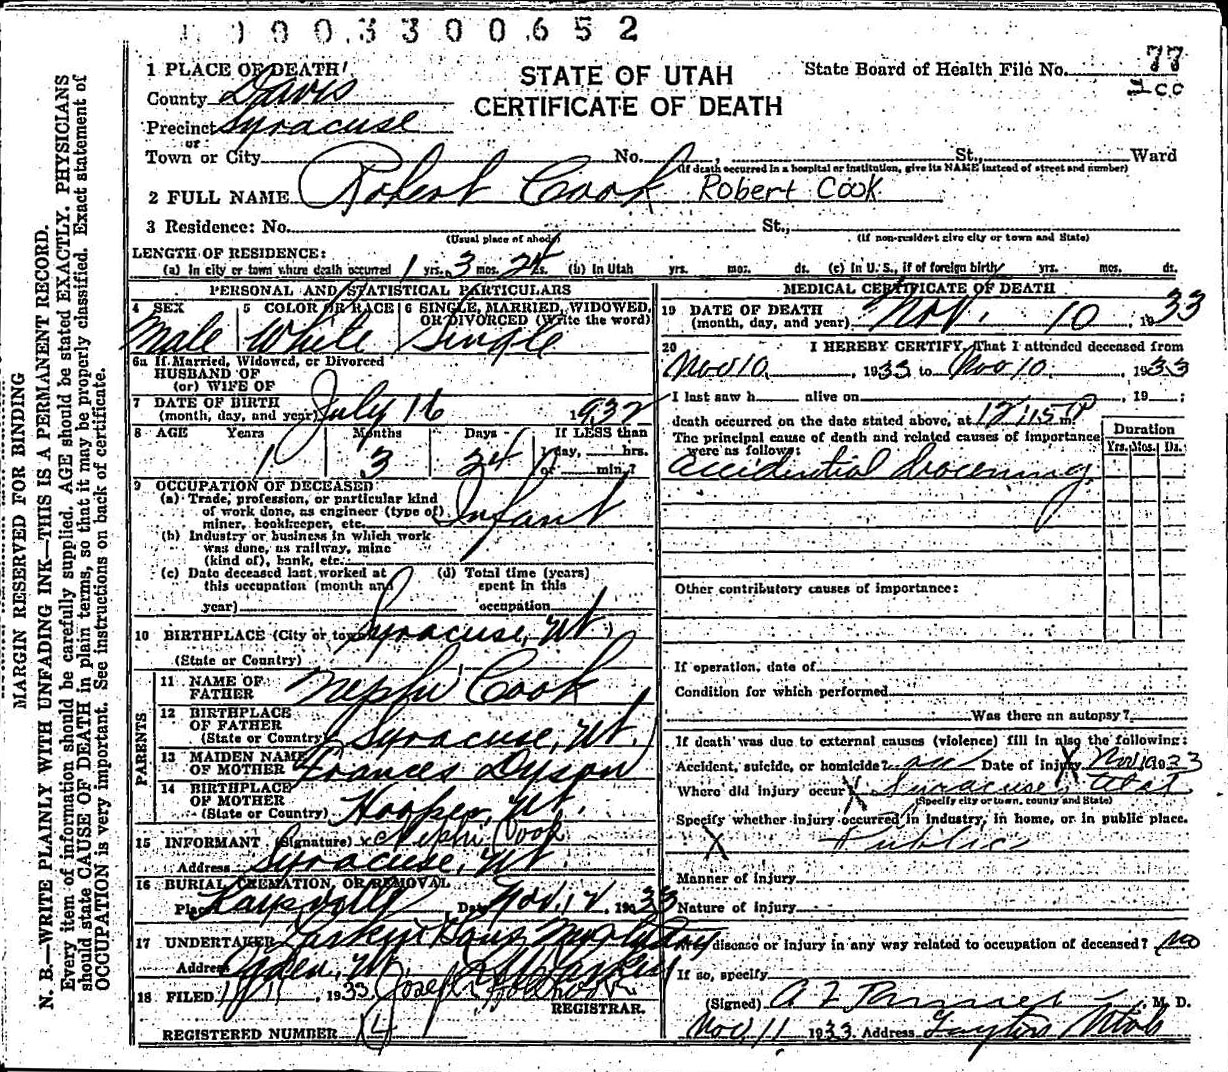 0 0 0 3 3 0 0 6 5 2
1 PLACE OF DEATH
County Davis
Precinct Syracuse
or
Town or City No. , St., Ward
(If death occurred in a hospital or institution, give its NAME instead of street and number)
STATE OF UTAH
CERTIFICATE OF DEATH
State Board of Health File No. 77
200
2 FULL NAME Robert Cook Robert Cook
3 Residence: No. St.,
(Usual place of abode) (If non-resident give city or town and State)
LENGTH OF RESIDENCE:
(a) In city or town where death occurred 1 yrs. 3 mos. 24 ds. (b) In Utah yrs. mos. ds. (c) In U. S., if of foreign birth yrs. mos. ds.
PERSONAL AND STATISTICAL PARTICULARS
4 SEX 5 COLOR OR RACE 6 SINGLE, MARRIED, WIDOWED,
OR DIVORCED (Write the word)
Male White Single
6a If Married, Widowed, or Divorced
HUSBAND OF
(or) WIFE OF
7 DATE OF BIRTH
(month, day, and year) July 16 1932
8 AGE Years Months Days If LESS than
1 3 24 day, hrs.
or min.?
9 OCCUPATION OF DECEASED
(a) Trade, profession, or particular kind
of work done, as engineer (type of)
miner, bookkeeper, etc. Infant
(b) Industry or business in which work
was done, as railway, mine
(kind of), bank, etc.
(c) Date deceased last worked at (d) Total time (years)
this occupation (month and spent in this
year) occupation
10 BIRTHPLACE (City or town) Syracuse, Ut.
(State or Country)
PARENTS
11 NAME OF
FATHER Nephi Cook
12 BIRTHPLACE
OF FATHER
(State or Country) Syracuse, Ut.
13 MAIDEN NAME
OF MOTHER Frances Dyson
14 BIRTHPLACE
OF MOTHER
(State or Country) Hooper, Ut.
15 INFORMANT (Signature) x Nephi Cook
Address Syracuse, Ut
16 BURIAL, CREMATION, OR REMOVAL
Place Kaysville Date Nov. 12 1933
17 UNDERTAKER Larkin & Sons Mortuary
Address Ogden, Ut. Larkin
18 FILED 11/11, 1933. Joseph
REGISTRAR.
REGISTERED NUMBER 14
MEDICAL CERTIFICATE OF DEATH
19 DATE OF DEATH
(month, day, and year) Nov. 10 1933
20 I HEREBY CERTIFY, That I attended deceased from
Nov 10, 1933 to Nov 10, 1933
I last saw h alive on , 19 ;
death occurred on the date stated above, at 12:15 P m.
The principal cause of death and related causes of importance
were as follows:
Duration
Yrs. Mos. Ds.
accidential drowning
Other contributory causes of importance:
If operation, date of
Condition for which performed
Was there an autopsy?
If death was due to external causes (violence) fill in also the following:
Accident, suicide, or homicide? acc Date of injury Nov 10 1933
Where did injury occur X Syracuse, Utah
(Specify city or town, county and State)
Specify whether injury occurred in industry, in home, or in public place.
X Public
Manner of injury
Nature of injury
disease or injury in any way related to occupation of deceased? No
If so, specify
(Signed) A Z Tanner, M. D.
Nov 11 1933 Address Layton Utah
MARGIN RESERVED FOR BINDING
N. B.—WRITE PLAINLY WITH UNFADING INK—THIS IS A PERMANENT RECORD.
Every item of information should be carefully supplied. AGE should be stated EXACTLY. PHYSICIANS
should state CAUSE OF DEATH in plain terms, so that it may be properly classified. Exact statement of
OCCUPATION is very important. See instructions on back of certificate.